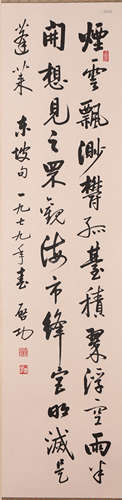 煙雲飄渺鬱孤臺積翠浮空雨半
開想見之罘觀海市絳宮明滅是
蓬萊 東坡句一九七九年書 啟功